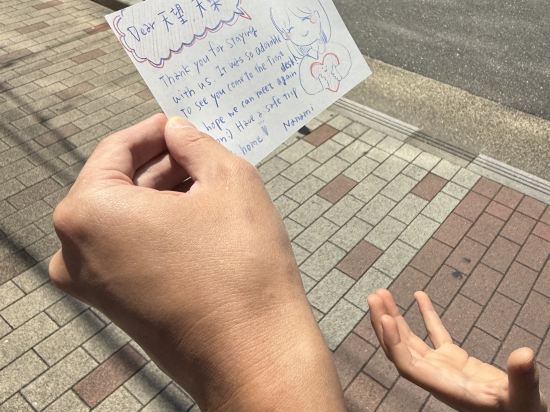 Dear 天望 大栄
Thank you for staying
with us. It was so adorable
to see you come to the front
desk!
hope we can meet again
:) Have a safe trip
home
Nanami